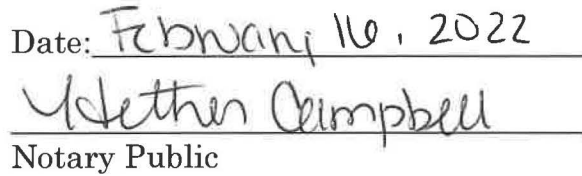 Date: February 16, 2022
Campbell
Notary Public